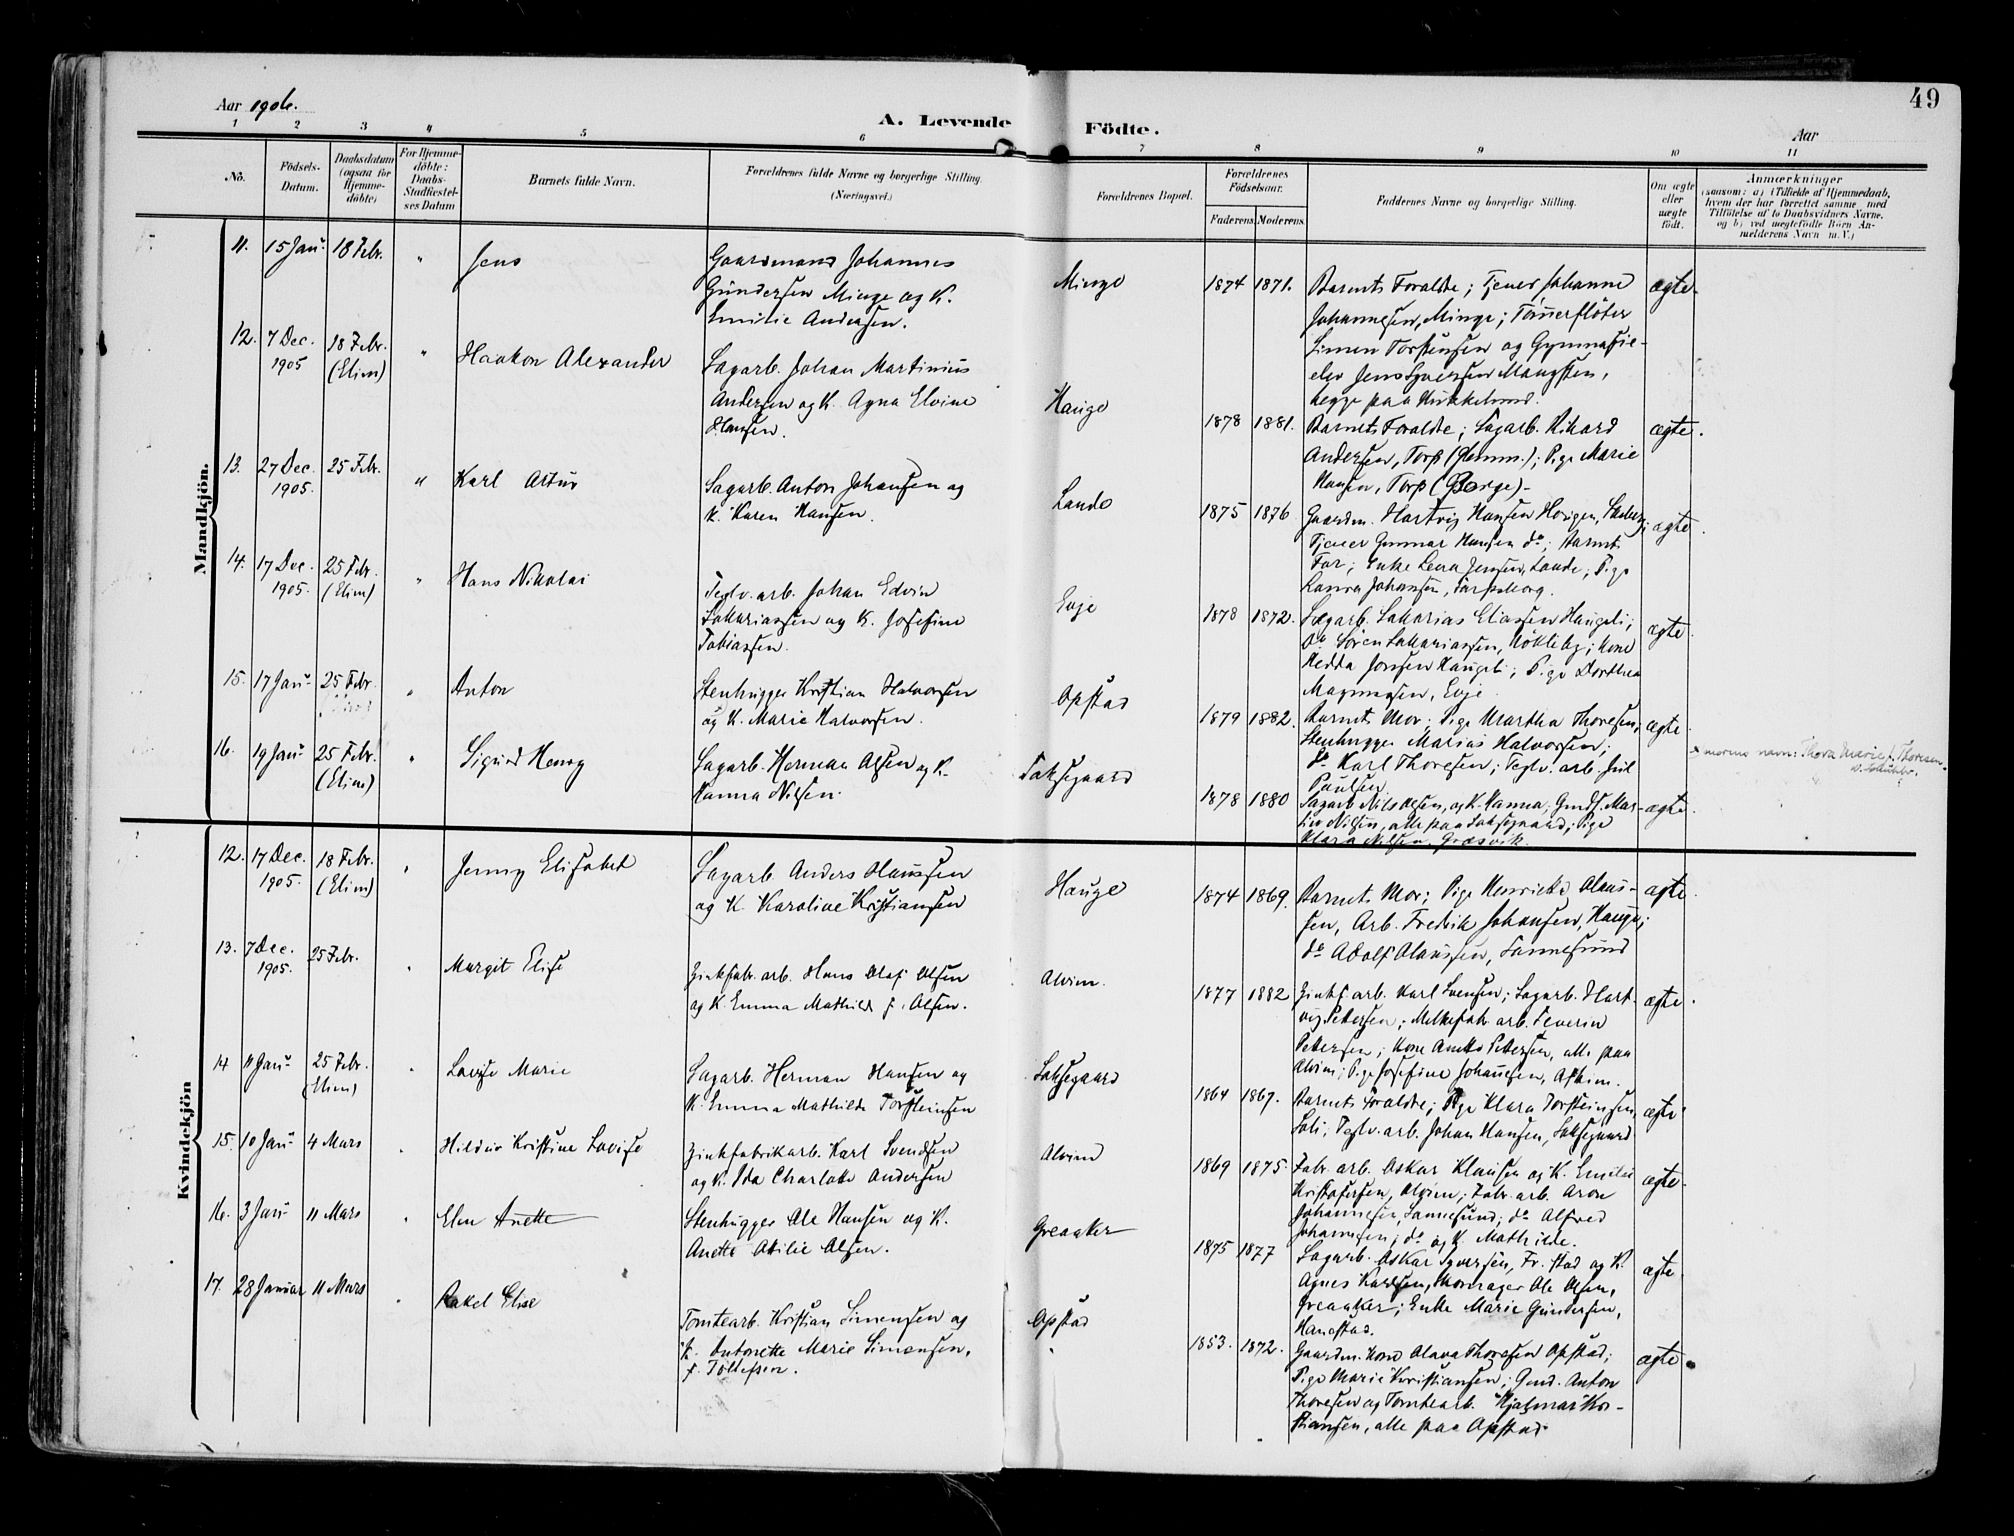 49
Aar 1906.
A. Levende Födte.
Aar
1 2 3 4 5 6 7 8 9 10 11
No.
Födsels-Datum.
Daabsdatum (ogsaa for Hjemme-döbte)
For Hjemme-döbte: Daabs-Stadfæstel-ses Datum
Barnets fulde Navn.
Forældrenes fulde Navne og borgerlige Stilling. (Næringsvei.)
Forældrenes Bopæl.
Forældrenes Födselsaar.
Faderens Moderens.
Faddernes Navne og borgerlige Stilling.
Om ægte eller uægte födt.
Anmærkninger
(saasom: a) i Tilfælde af Hjemmedaab,
hvem der har forrettet samme, med
Tilföielse af to Daabsvidners Navne,
og b) ved uægtefödte Börn An-
melderens Navn m. V.)
Mandkjön.
11. 15 Jan. 18 Febr. " Jens
Gaardmand Johannes
Gundersen Minge og K.
Emilie Andersen.
Minge 1874 1871.
Barnets Forældre; Tjener Johanne
Johannesen, Minge; Tømmerfløter
Simen Torstensen og Gymnasie-
elev Jens Syversen Mangsten,
begge paa
ægte.
12. 7 Dec. 1905 18 Febr. (Elim) " Haakon Alexander
Sagarb. Johan Martinius
Andersen og K. Agna Elvine
Hansen.
Hauge 1878 1881.
Barnets Forældre; Sagarb. Rikard
Andersen, Torp (Glemm.); Pige Marie
Hansen, Torp (Borge).
ægte.
13. 27 Dec. 1905. 25 Febr. " Karl Artur
Sagarb. Anton Johansen og
K. Karen Hansen.
Lande 1875 1876
Gaardm. Hartvig Hansen
Tjener Gunnar Hansen do; Barnets
Far; Enke Lena Jensen, Lande; Pige
Johansen, Sarpsborg.
ægte.
14. 17 Dec. 1905. 25 Febr. (Elim) " Hans Nikolai
Teglv. arb. Johan Edvin
Sakariassen og K. Josefine
Tobiassen.
Evje 1878 1872.
Sagarb. Sakarias Eliassen Haugeli;
do Søren Sakariassen, Nøkleby; Kone
Hedda Jonsen Haugeli; Pige Dorthea
Magnussen, Evje.
ægte
15. 17 Jan. 25 Febr. " Anton
Stenhugger Kristian Halvorsen
og K. Marie Halvorsen.
Opstad 1879 1882.
Barnets Mor; Pige Martha Thoresen;
Stenhugger Marius Halvorsen;
do Karl Thoresen; Teglv. arb. Juil
Paulsen
ægte
morens navn: Thora Marie f. Thoresen.
16. 19 Jan. 25 Febr. (Elim) " Sigurd Henry
Sagarb. Herman Olsen og K.
Hanna Nilsen.
Saksegaard 1878 1880
Sagarb. Nils Olsen, og K. Hanna; Gmdf. Mar-
tin Nilsen, alle paa Saksegaard; Pige
Klara Nilsen Græsvik.
ægte.
Kvindekjön
12. 17 Dec. 1905. 18 Febr. (Elim) " Jenny Elisabet
Sagarb. Anders Olaussen
og K. Karoline Kristiansen
Hauge 1874 1869.
Barnets Mor; Pige Henriette Olaus-
sen, Arb. Fredrik Johansen, Hauge;
do Adolf Olaussen, Sannesund
ægte.
13. 7 Dec. 1905. 25 Febr. " Margit Elise
Zinkfabr. arb. Hans Olaf Olsen
og K. Emma Mathilde f. Olsen.
Alvim. 1877 1882
Zinkf. arb. Karl Svensen; Sagarb. Hart-
vig Petersen; Melkefabr. arb. Severin
Petersen; Kone Anette Petersen, alle paa
Alvim; Pige Josefine Johansen, Askim.
ægte.
14 11 Jan. 25 Febr. (Elim) " Lovise Marie
Sagarb. Herman Hansen og
K. Emma Mathilde Torsteinsen
Saksegaard 1864 1867.
Barnets Forældre; Pige Klara Torsteinsen,
Soli; Teglv. arb. Johan Hansen, Saksegaard
ægte
15. 10 Jan. 4 Mars " Hildur Kristine Lovise
Zinkfabrikarb. Karl Svendsen
og K. Ida Charlotte Andersen
Alvim 1869 1875.
Fabr. arb. Oskar Klausen og K. Emilie
Kristofersen, Alvim; Fabr. arb. Aron
Johannesen, Sannesund; do Alfred
Johannesen; do og K. Mathilde.
ægte.
16. 3 Jan. 11 Mars " Elen Anette
Stenhugger Ole Hansen og K.
Anette Otilie Olsen.
Greaaker 1875 1877
Sagarb. Oskar Syversen, Fr. stad og K.
Agnes Karlsen, Skomager Ole Olsen,
Greaaker; Enke Marie Gundersen,
Hanestad.
ægte.
17. 28 Januar 11 Mars " Rakel Elise
Tomtearb. Kristian Simensen og
K. Antonette Marie Simensen,
f. Tollefsen.
Opstad 1853. 1872.
Gaardm. Kone Olava Thoresen Opstad;
Pige Marie Kristiansen; Gmd. Anton
Thoresen og Tomtearb. Hjalmar Kri-
stiansen, alle paa Opstad.
ægte.